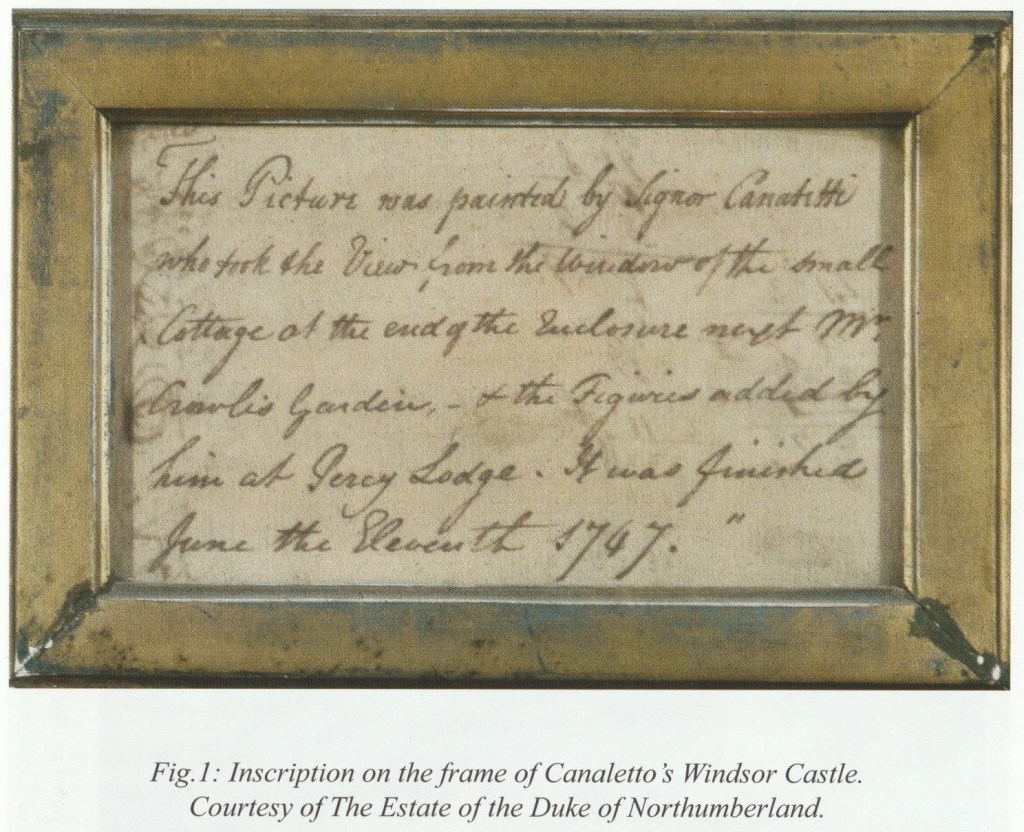 This Picture was painted by Signor Canaletti
who took the View from the Window of the small
Cottage at the end of the Enclosure next Mr.
Crowlis Garden, - & the Figures added by
him at Percy Lodge. It was finished
June the Eleventh 1747. "
Fig.1: Inscription on the frame of Canaletto's Windsor Castle.
Courtesy of The Estate of the Duke of Northumberland.